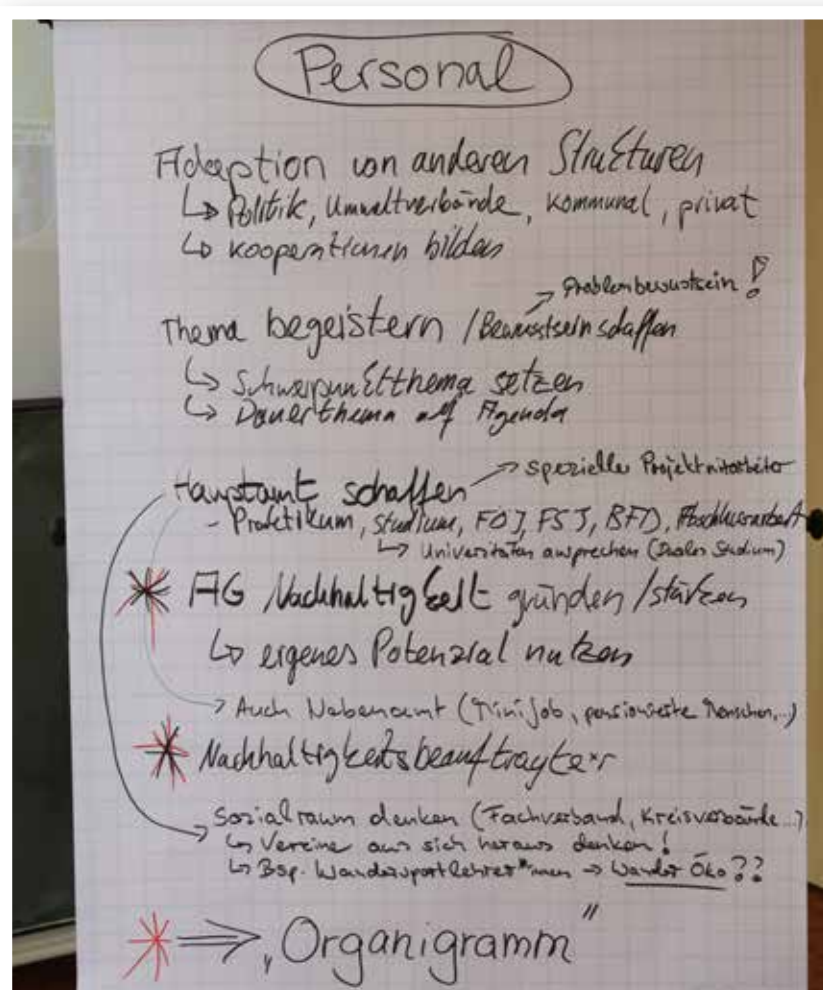 Personal
Adaption von anderen Strukturen
↳ Politik, Umweltverbände, kommunal, privat
↳ Kooperationen bilden
→ Problembewustsein!
Thema begeistern / Bewusstsein schaffen
↳ Schwerpunktthema setzen
↳ Dauerthema auf Agenda
→ spezieller Projektmitarbeiter
Hauptamt schaffen
- Praktikum, Studium, FÖJ, FSJ, BFD, Abschlussarbeit
↳ Universitäten ansprechen (Duales Studium)
* AG Nachhaltigkeit gründen / stärken
↳ eigenes Potenzial nutzen
→ Auch Nebenamt (Minijob, pensionierte Menschen,..)
* Nachhaltigkeitsbeauftragte*r
→ Sozialraum denken (Fachverband, Kreisverbände...)
↳ Vereine aus sich heraus denken!
↳ Bsp. Wandersportlehrer*innen → Wander Öko??
* ⇒ „Organigramm"